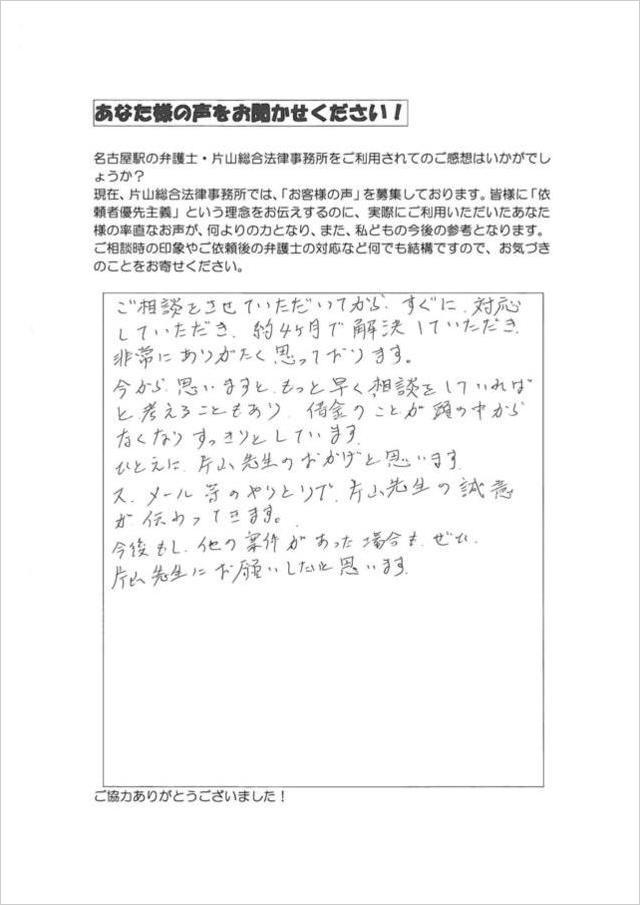 あなた様の声をお聞かせください！
名古屋駅の弁護士・片山総合法律事務所をご利用されてのご感想はいかがでし
ょうか？
現在、片山総合法律事務所では、「お客様の声」を募集しております。皆様に「依
頼者優先主義」という理念をお伝えするのに、実際にご利用いただいたあなた
様の率直なお声が、何よりの力となり、また、私どもの今後の参考となります。
ご相談時の印象やご依頼後の弁護士の対応など何でも結構ですので、お気づき
のことをお寄せください。
ご相談をさせていただいてから、すぐに、対応
していただき、約4ヶ月で解決していただき
非常にありがたく思っております。
今から思いますと、もっと早く相談をしていれば
と考えることもあり、借金のことが頭の中から
なくなりすっきりとしています。
ひとえに、片山先生のおかげと思います。
又、メール等のやりとりで、片山先生の誠意
が伝わってきます。
今後もし、他の案件があった場合も、ぜひ、
片山先生にお願いしたいと思います。
ご協力ありがとうございました！